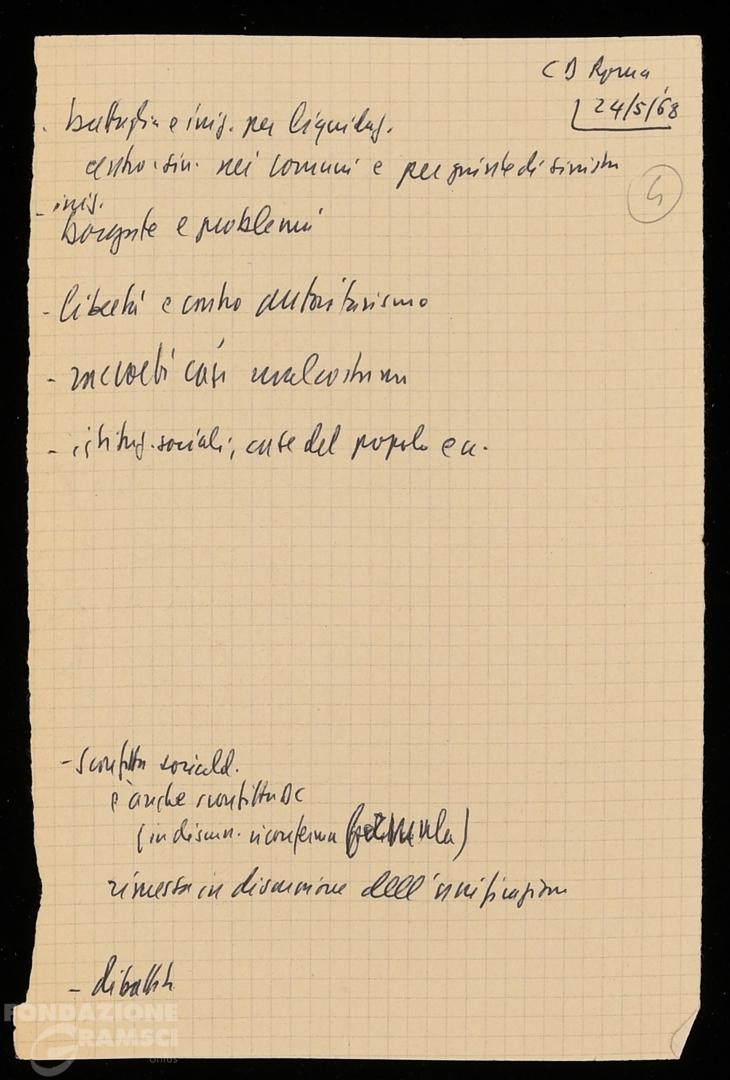 CD Roma
24/5/68
4
. battaglia e iniz. per liquidaz.
centro-sin. nei comuni e per giunte di sinistra
- iniz.
borgate e problemi
- libertà e contro autoritarismo
- raccolti casi malcostume
- istituz. sociali, case del popolo ecc.
- Sconfitta sociald.
è anche sconfitta DC
(in discuss. riconferma formula)
rimessa in discussione dell'unificazione
- dibattito
FONDAZIONE
GRAMSCI
onlus